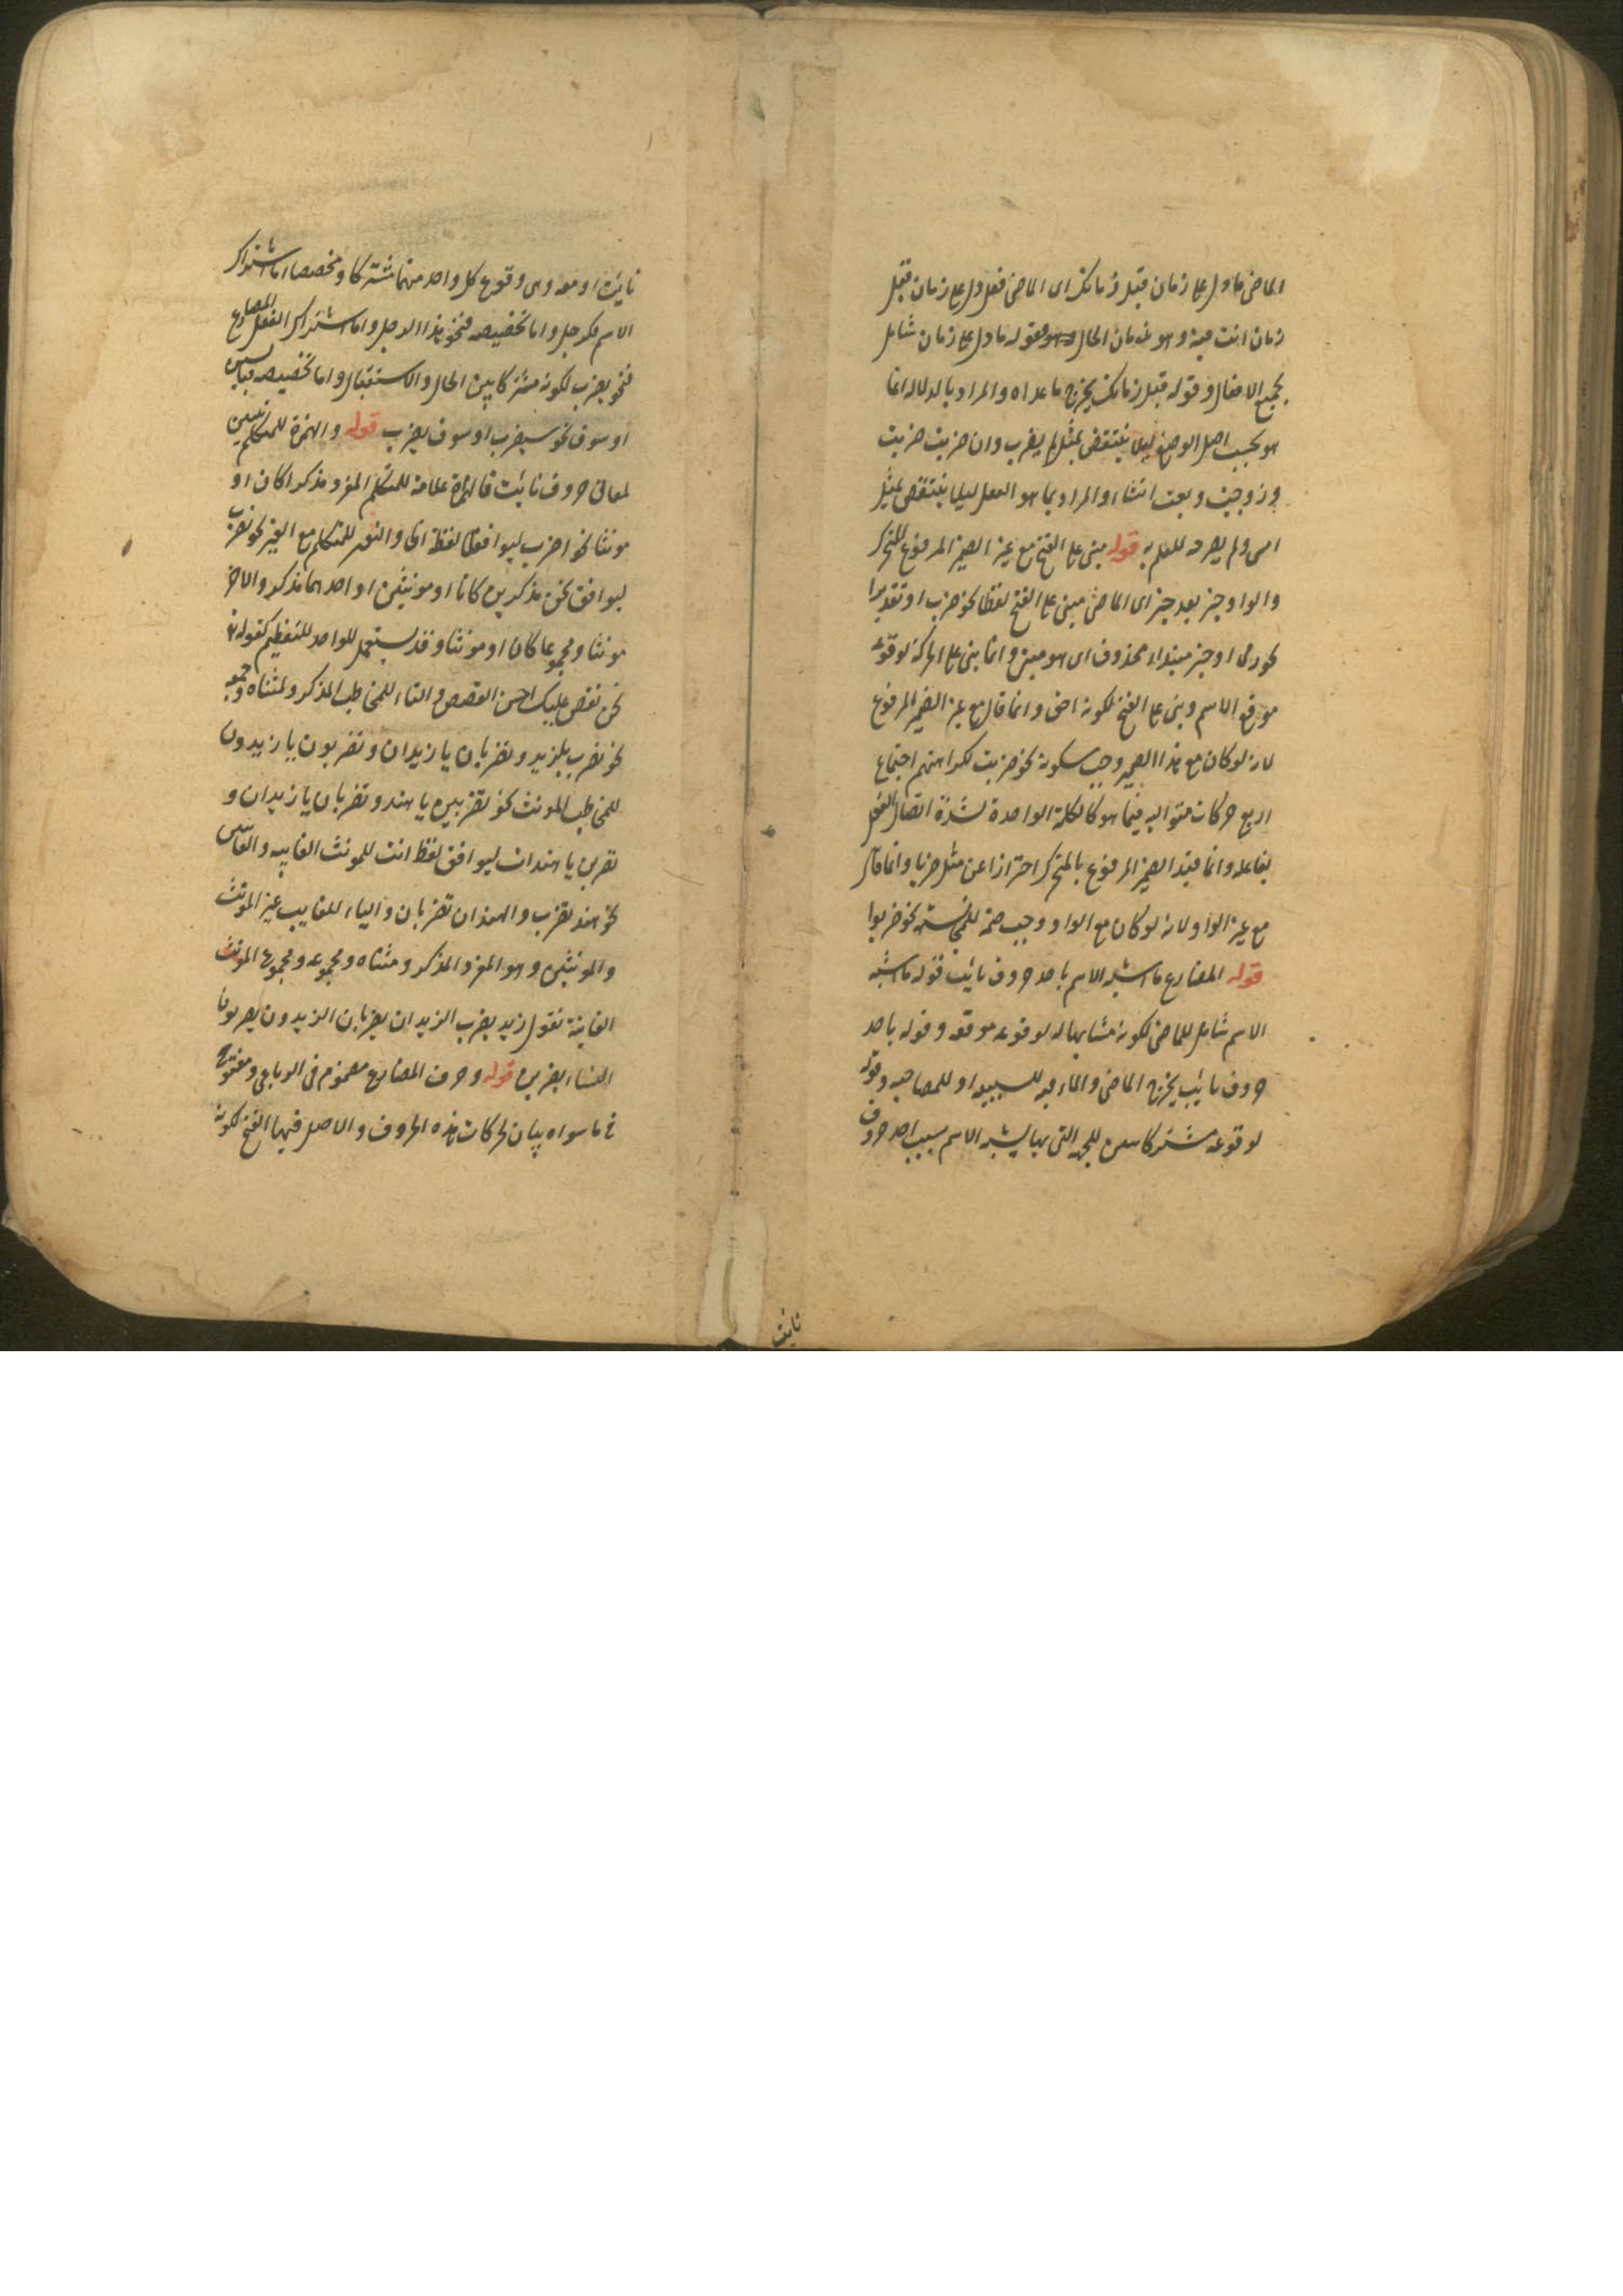 الماضى ما دل على زمان قبل زمانك اى الماضى فعل دل على زمان قبل
زمان انت فيه وهو زمان الحال فقوله ما دل على زمان شامل
لجميع الافعال وقوله قبل زمانك يخرج ما عداه والمراد بالدلالة انما
هو بحسب اصل الوضع ليلا ينتقض بمثل لم يضرب وان ضربت ضربت
وزوجت وبعت انشاء والمراد بما هو الفعل ليلا ينتقض بمثل
امس ولم يصرح للعلم به قوله مبنى على الفتح مع غير الضمير المرفوع المتحرك
والواو خبر بعد خبر اى الماضى مبنى على الفتح لفظا نحو ضرب او تقديرا
نحو رمى او خبر مبتداء محذوف اى هو مبنى وانما بنى على الحركة لوقوعه
موقع الاسم وبنى على الفتح لكونه اخف وانما قال مع غير الضمير المرفوع
لانه لو كان مع هذا الضمير وجب سكونه نحو ضربت لكراهتهم اجتماع
اربع حركات متواليه فيما هو كالكلمة الواحدة لشدة اتصال الفعل
بفاعله وانما قيد الضمير المرفوع بالمتحرك احترازا عن مثل ضربا وانما قال
مع غير الواو لانه لو كان مع الواو وجب ضمه للمجانسة نحو ضربوا
قوله المضارع ما اشبه الاسم باحد حروف نايت فقوله ما اشبه
الاسم شامل للماضى لكونه مشابها له لوقوعه موقعه وقوله باحد
حروف نايت يخرج الماضى والباء فيه للسببيه او للمصاحبه وقوله
لوقوعه مشتركا بيان للجهة التى بها يشبه الاسم بسبب احد حروف
نايت
نايت او معه وهى وقوع كل واحد منهما مشتركا ومخصصا اما اشتراك
الاسم فكرجل واما تخصيصه فنحو هذا الرجل واما اشتراك الفعل المضارع
فنحو يضرب لكونه مشتركا بين الحال والاستقبال واما تخصيصه فبالسين
او سوف نحو سيضرب او سوف يضرب قوله والهمزة للمتكلم تبيين
لمعانى حروف نايت فالهمزة علامة للمتكلم المفرد مذكرا كان او
مونثا نحو اضرب ليوافق لفظة انا والنون للمتكلم مع الغير نحو نضرب
ليوافق نحن مذكرين كانا او مونثين او احدهما مذكر والاخر
مونثا ومجموعا كان او مونثا وقد يستعمل للواحد للتعظيم كقوله تع
نحن نقص عليك احسن القصص والتاء للمخاطب المذكر ولمثناه وجمعه
نحو تضرب يا زيد وتضربان يا زيدان وتضربون يا زيدون
للمخاطب المونث نحو تضربين يا هند وتضربان يا زيدان و
تضربن يا هندات ليوافق لفظ انت للمونث الغايبه والغايبتين
نحو هند تضرب والهندان تضربان والياء للغايب غير المونث
والمونثين وهو المفرد المذكر ومثناه ومجموعه ومجموع المونث
الغايبة تقول زيد يضرب الزيدان يضربان الزيدون يضربون
النساء يضربن قوله وحرف المضارع مضموم فى الرباعى ومفتوح
فى ما سواه بيان لحركات هذه الحروف والاصل فيها الفتح لكونه